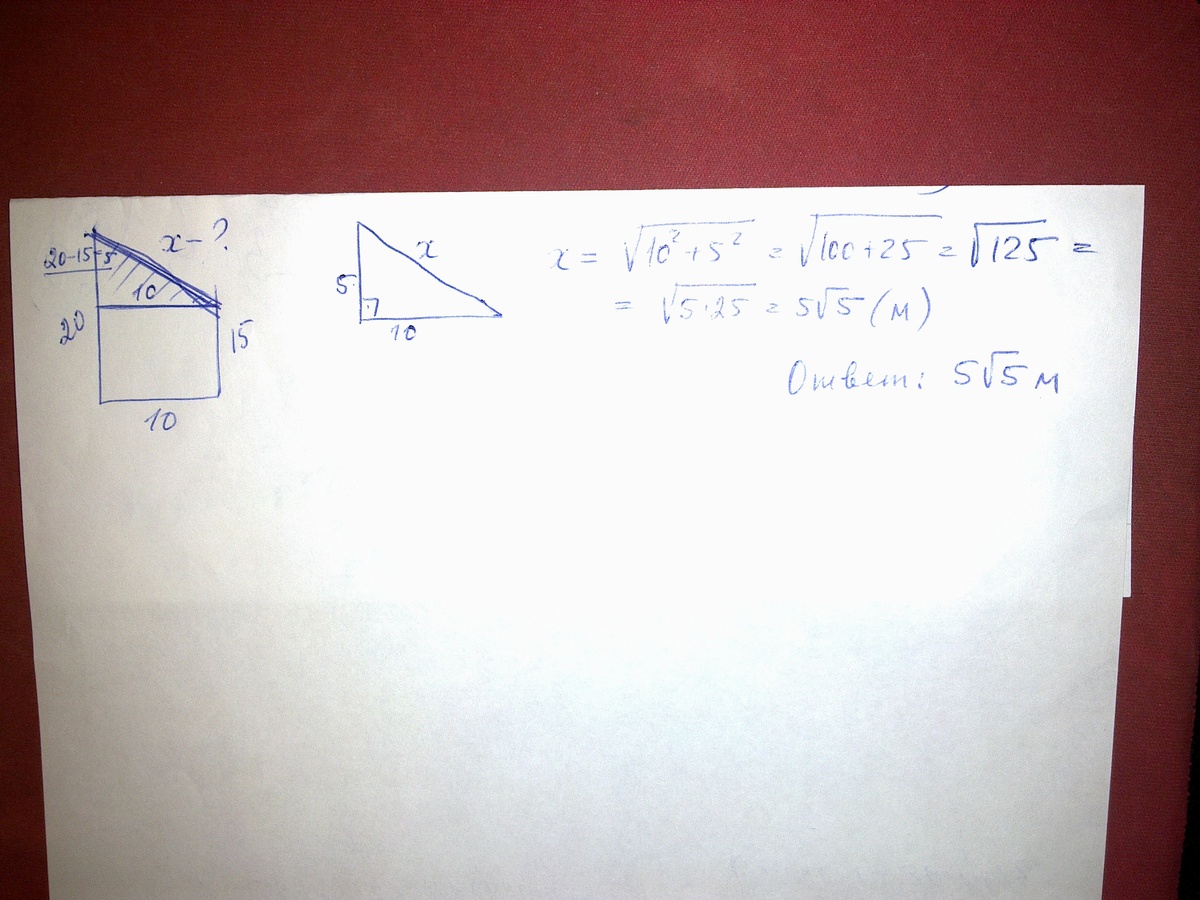 x - ?
20-15=5
10
20
15
10
x
5
10
x = √10² + 5² = √100 + 25 = √125 =
= √5·25 = 5√5 (м)
Ответ: 5√5 м